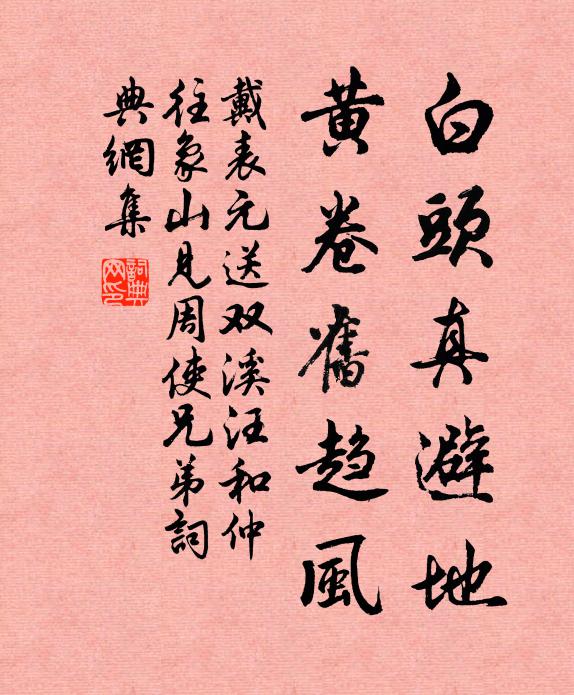 白頭真避地
黄卷舊趋風
戴表元送双溪汪和仲
往象山見周使兄弟詞
典網集
詞典网印